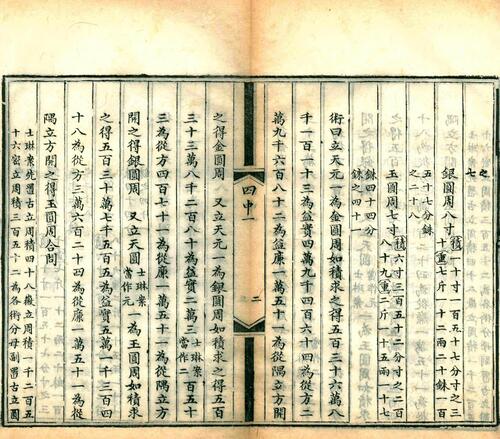 之七
銀圓周八寸積一十寸一百五十七分寸之三十重七斤一十二兩二十銖一百
五十七分銖之二十八
玉圓周七寸積六寸三百五十二分寸之二百八十九重二斤一十五兩一十七
銖四十四分銖之四十一
術曰立天元一為金圓周如積求之得五百三十六萬八
千一百一十三為益實四萬九千四百六十四為從方二
萬九千六百八十二為益廉一萬五十一為從隅立方開
四中一 二
之得金圓周 又立天元一為銀圓周如積求之得五百
三十三萬八千二百八十為益實二萬三士琳案當作二百五十
三為從方四百七十一為從廉一萬五十一為從隅立方
開之得銀圓周 又立天圓士琳案當作元一為玉圓周如積求
之得五百三十一萬七千五百五為益實五萬一千三百四
十八為從方三萬六百二十四為從廉一萬五十一為從
隅立方開之得玉圓周合問
士琳案先置古立周積四十八徽立周積一千二百五
十六密立周積三百五十二為各術分母副置古立圓